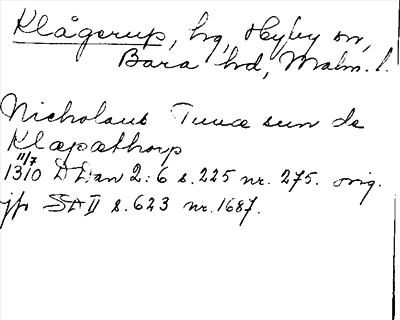 Klågerup, hg, Hyby sn,
Bara hd, Malm. l.
Nicholaus Tuuæ sun de
Klæpæthorp
11/7
1310 DDan 2:6 s. 225 nr. 275. orig.
jfr SD II s. 623 nr. 1687.